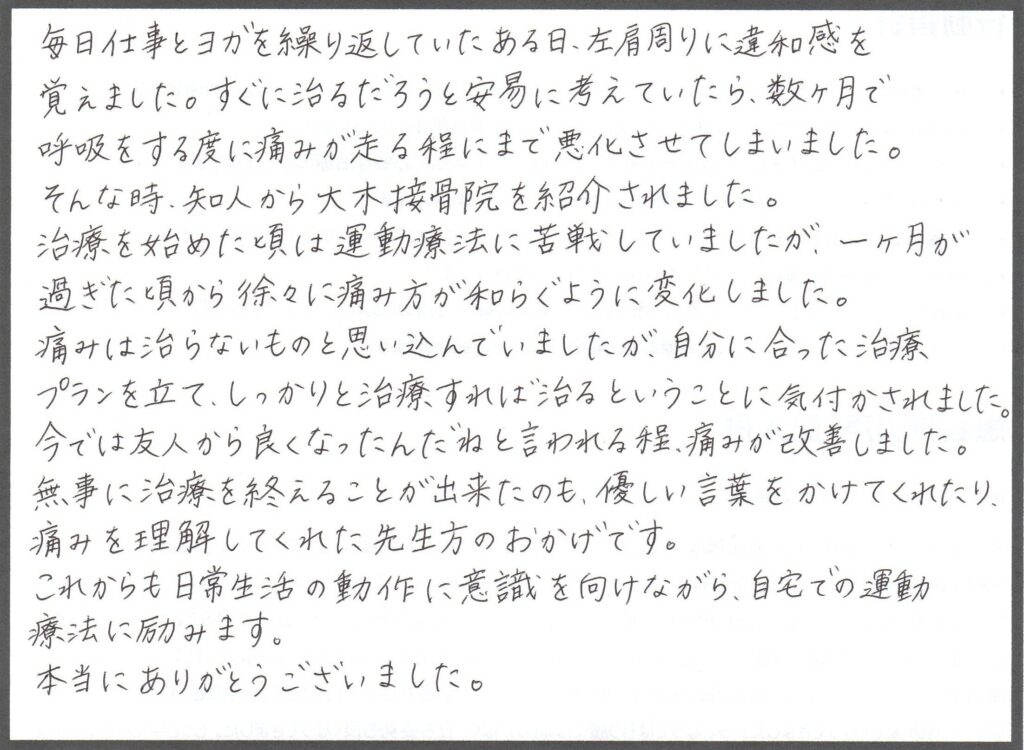 毎日仕事とヨガを繰り返していたある日、左肩周りに違和感を
覚えました。すぐに治るだろうと安易に考えていたら、数ヶ月で
呼吸をする度に痛みが走る程にまで悪化させてしまいました。
そんな時、知人から大木接骨院を紹介されました。
治療を始めた頃は運動療法に苦戦していましたが、一ヶ月が
過ぎた頃から徐々に痛み方が和らぐように変化しました。
痛みは治らないものと思い込んでいましたが、自分に合った治療
プランを立て、しっかりと治療すれば治るということに気付かされました。
今では友人から良くなったんだねと言われる程、痛みが改善しました。
無事に治療を終えることが出来たのも、優しい言葉をかけてくれたり、
痛みを理解してくれた先生方のおかげです。
これからも日常生活の動作に意識を向けながら、自宅での運動
療法に励みます。
本当にありがとうございました。